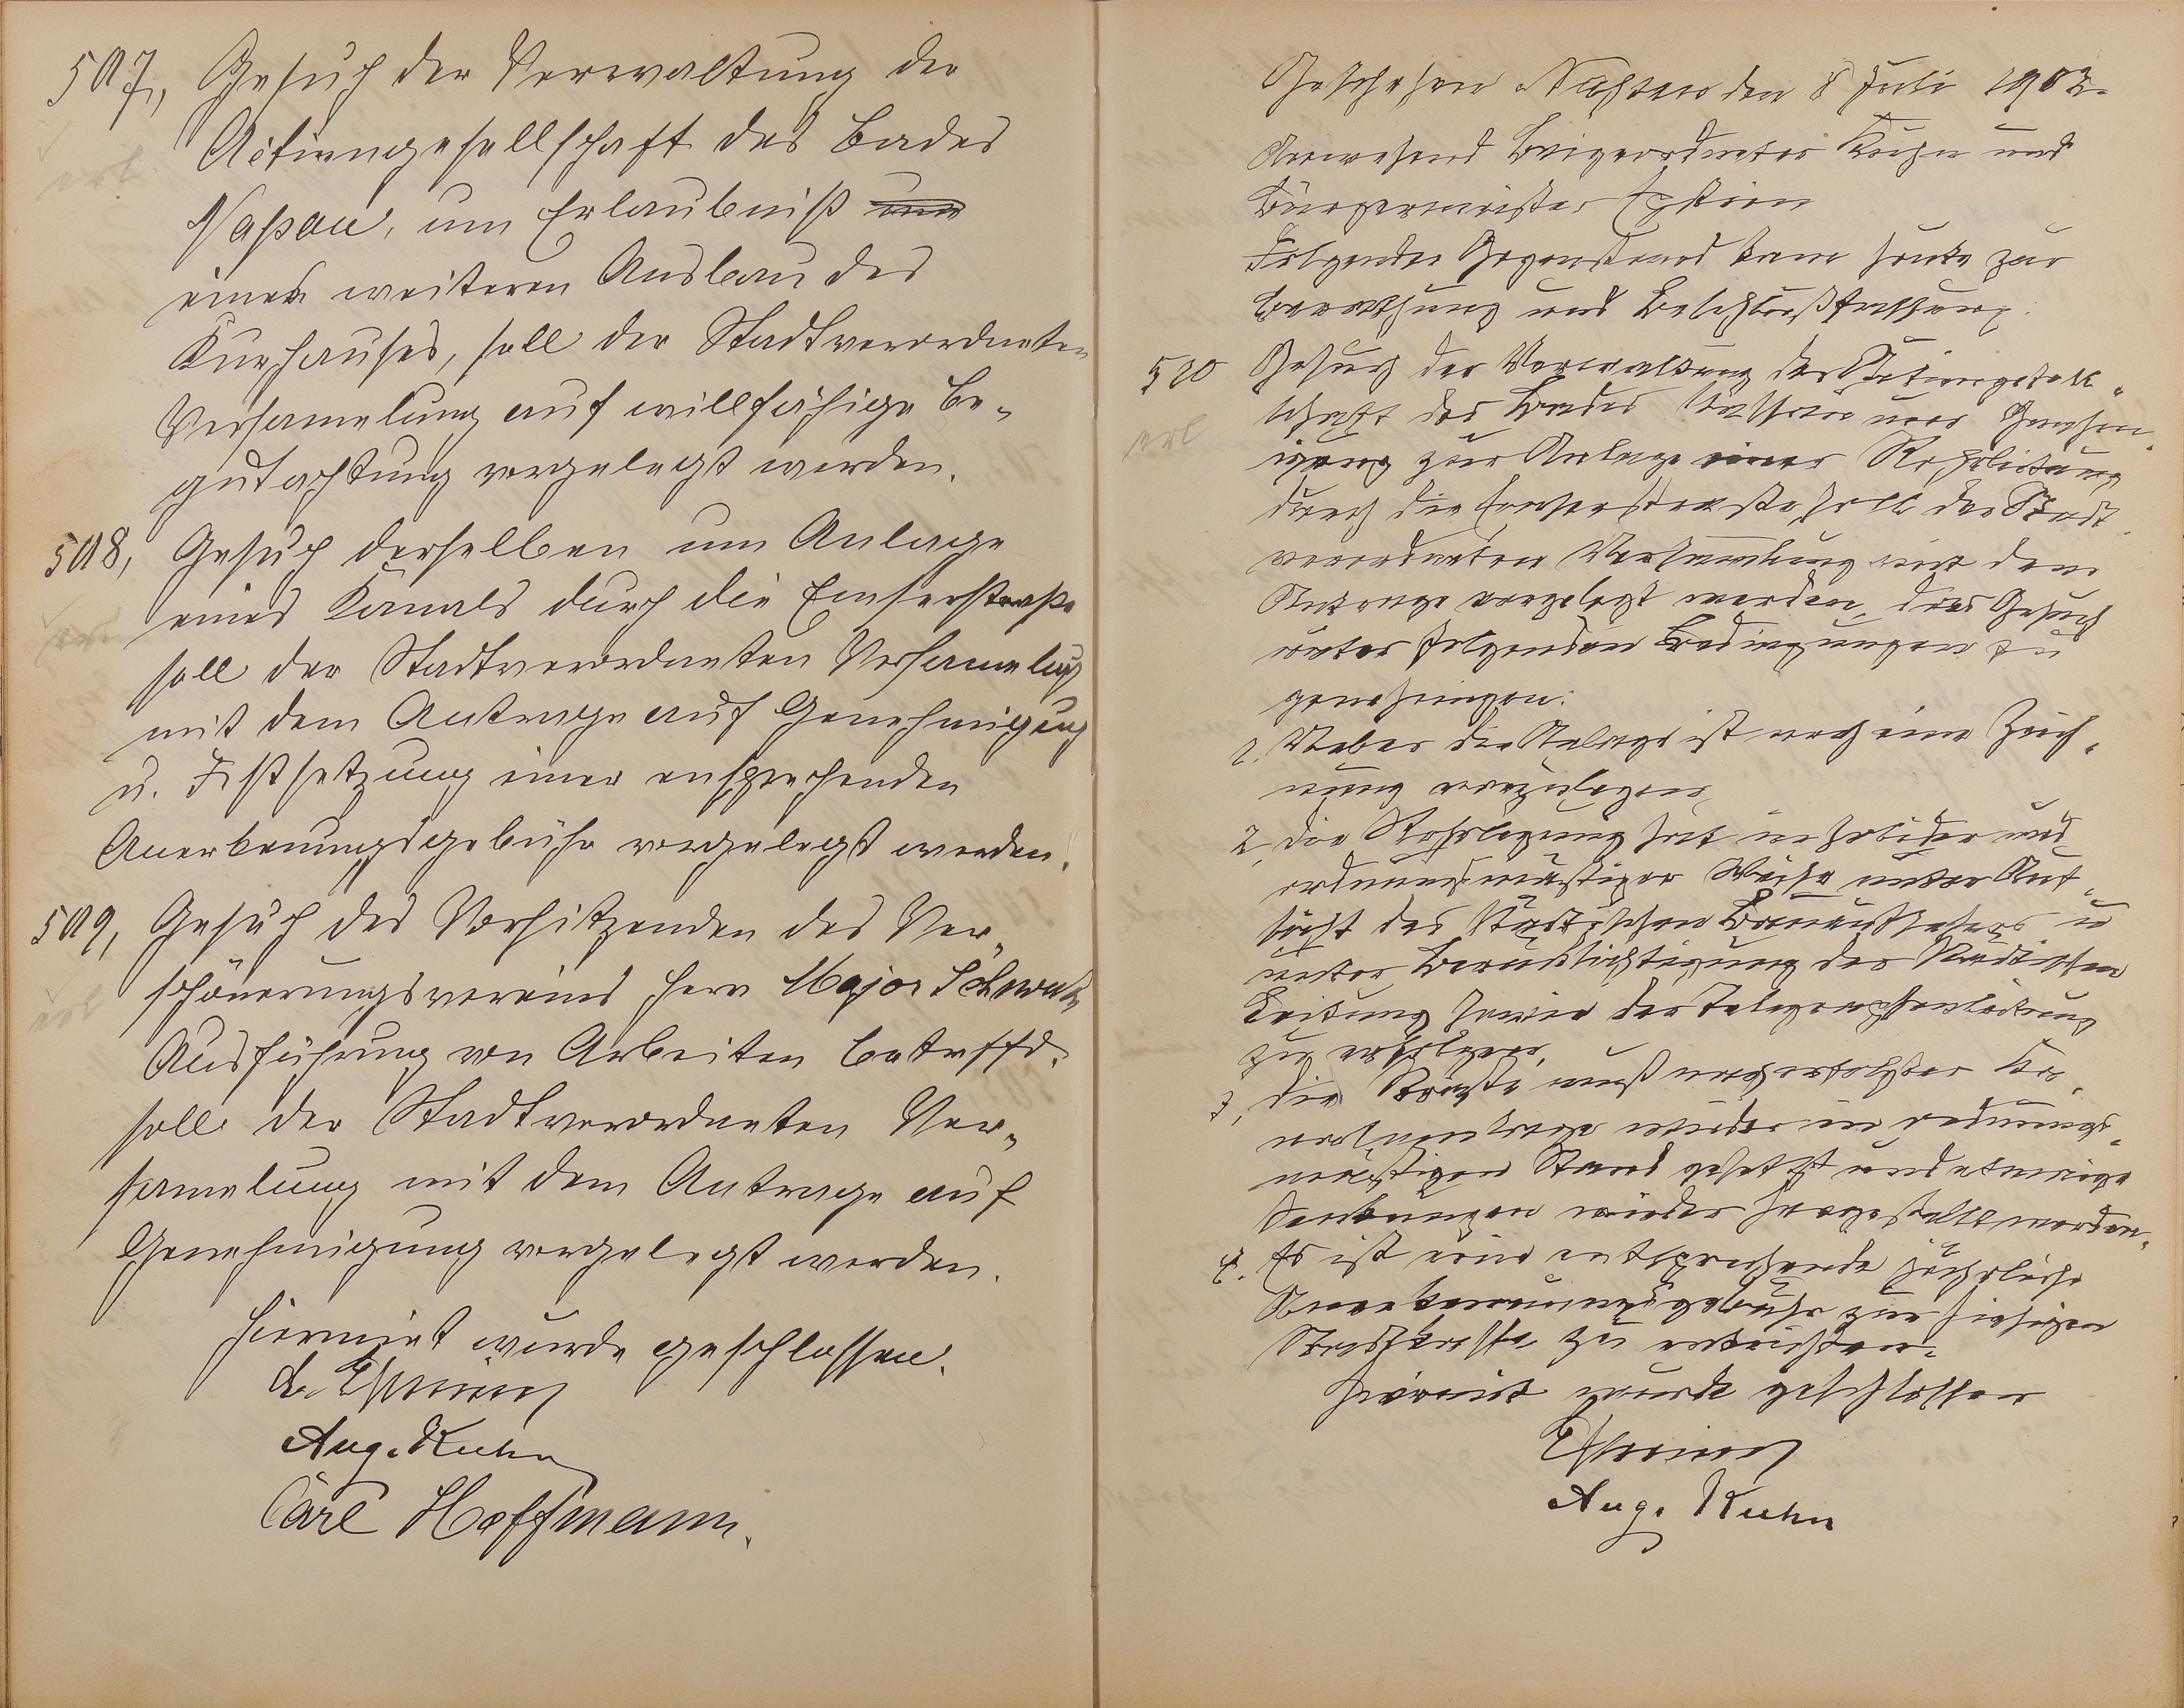 507, Gesuch der Verwaltung der
Actiengesellschaft des Bades
erl.
Naßau, um Erlaubniß
eines weiteren Ausbau des
Kurhauses, soll der Stadtverordneten
Versamelung auf willfähige Be-
gutachtung vorgelegt werden.
508, Gesuch derselben um Anlage
eines Kanals durch die Emserstraße
erl
soll der Stadtverordneten Versamelug
mit dem Antrage auf Genehmigung
u. Festsetzung einer ensprechenden
Anerkenungsgebühr vorgelegt werden.
509, Gesuch des Vorsitzenden des Ver-
schönerungsvereins Herr Major
erl
Ausführung von Arbeiten betreffd.
soll der Stadtverordneten Ver-
samelung mit dem Antrage auf
Genehmigung vorgelegt werden.
Hiermit wurde geschlossen.
Aug. Kuhn
Carl Hoffmann.
Geschehen Nassau den 8 Juli 1902.
Anwesend Beigeordneter Kuhn und
Bürgermeister
Folgender Gegenstand kam heute zur
Berathung und Beschlußfassung.
510 Gesuch der Verwaltung der Actiengesell-
schaft des Bades Nassau um Genehm-
erl
igung zur Anlage einer Rohrleitung
durch die Emserstraße soll der Stadt-
verordneten Versammlung mit dem
Antrage vorgelegt werden, das Gesuch
unter folgenden Bedingungen zu
genehmigen:
1. Ueber die Anlage ist noch eine Zeich-
nung vorzulegen
2, die Rohrlegung hat in solider und
ordnungsmäßiger Weise unter Auf-
sicht des städtischen Bauaufsehers u
unter Berücksichtigung der städtischen
Leitung sowie der Telegraphenleitung
zu erfolgen.
3, die Straße muß nach erfolgter
wieder in ordnungs-
mäßigen Stand gesetzt und etwaige
Senkungen wieder hergestellt werden.
4. Es ist eine entsprechende jährliche
Anerkennungsgebühr zur hiesigen
Stadtkasse zu entrichten.
Hiermit wurde geschlossen
Aug. Kuhn